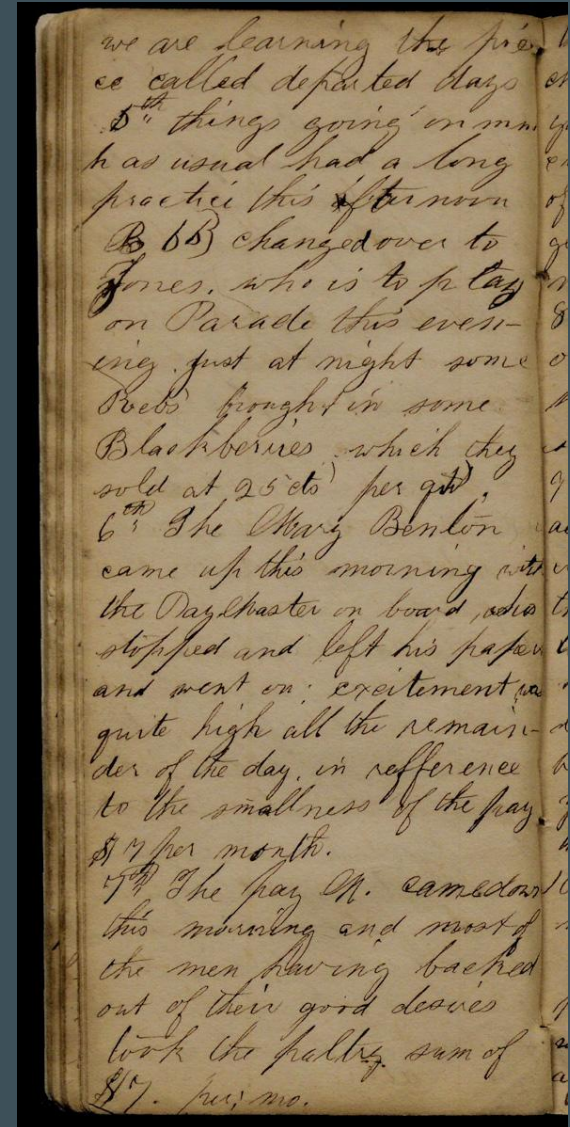 we are learning the pie
ce called departed days
5th things going on mu
h as usual had a long
practice this afternoon
changed over to
Jones. who is to play
on Parade this even-
ing. just at night some
Rebs brought in some
Blackberries, which they
sold at 25 cts per qt.
6th The Mary Benton
came up this morning with
the Pay Master on board, who
stopped and left his paper
and went on. excitement was
quite high all the remain-
der of the day. in refference
to the smallness of the pay
$7 per month.
7th The pay M. came down
this morning and most of
the men having backed
out of their good desires
took the paltry sum of
$7. per. mo.